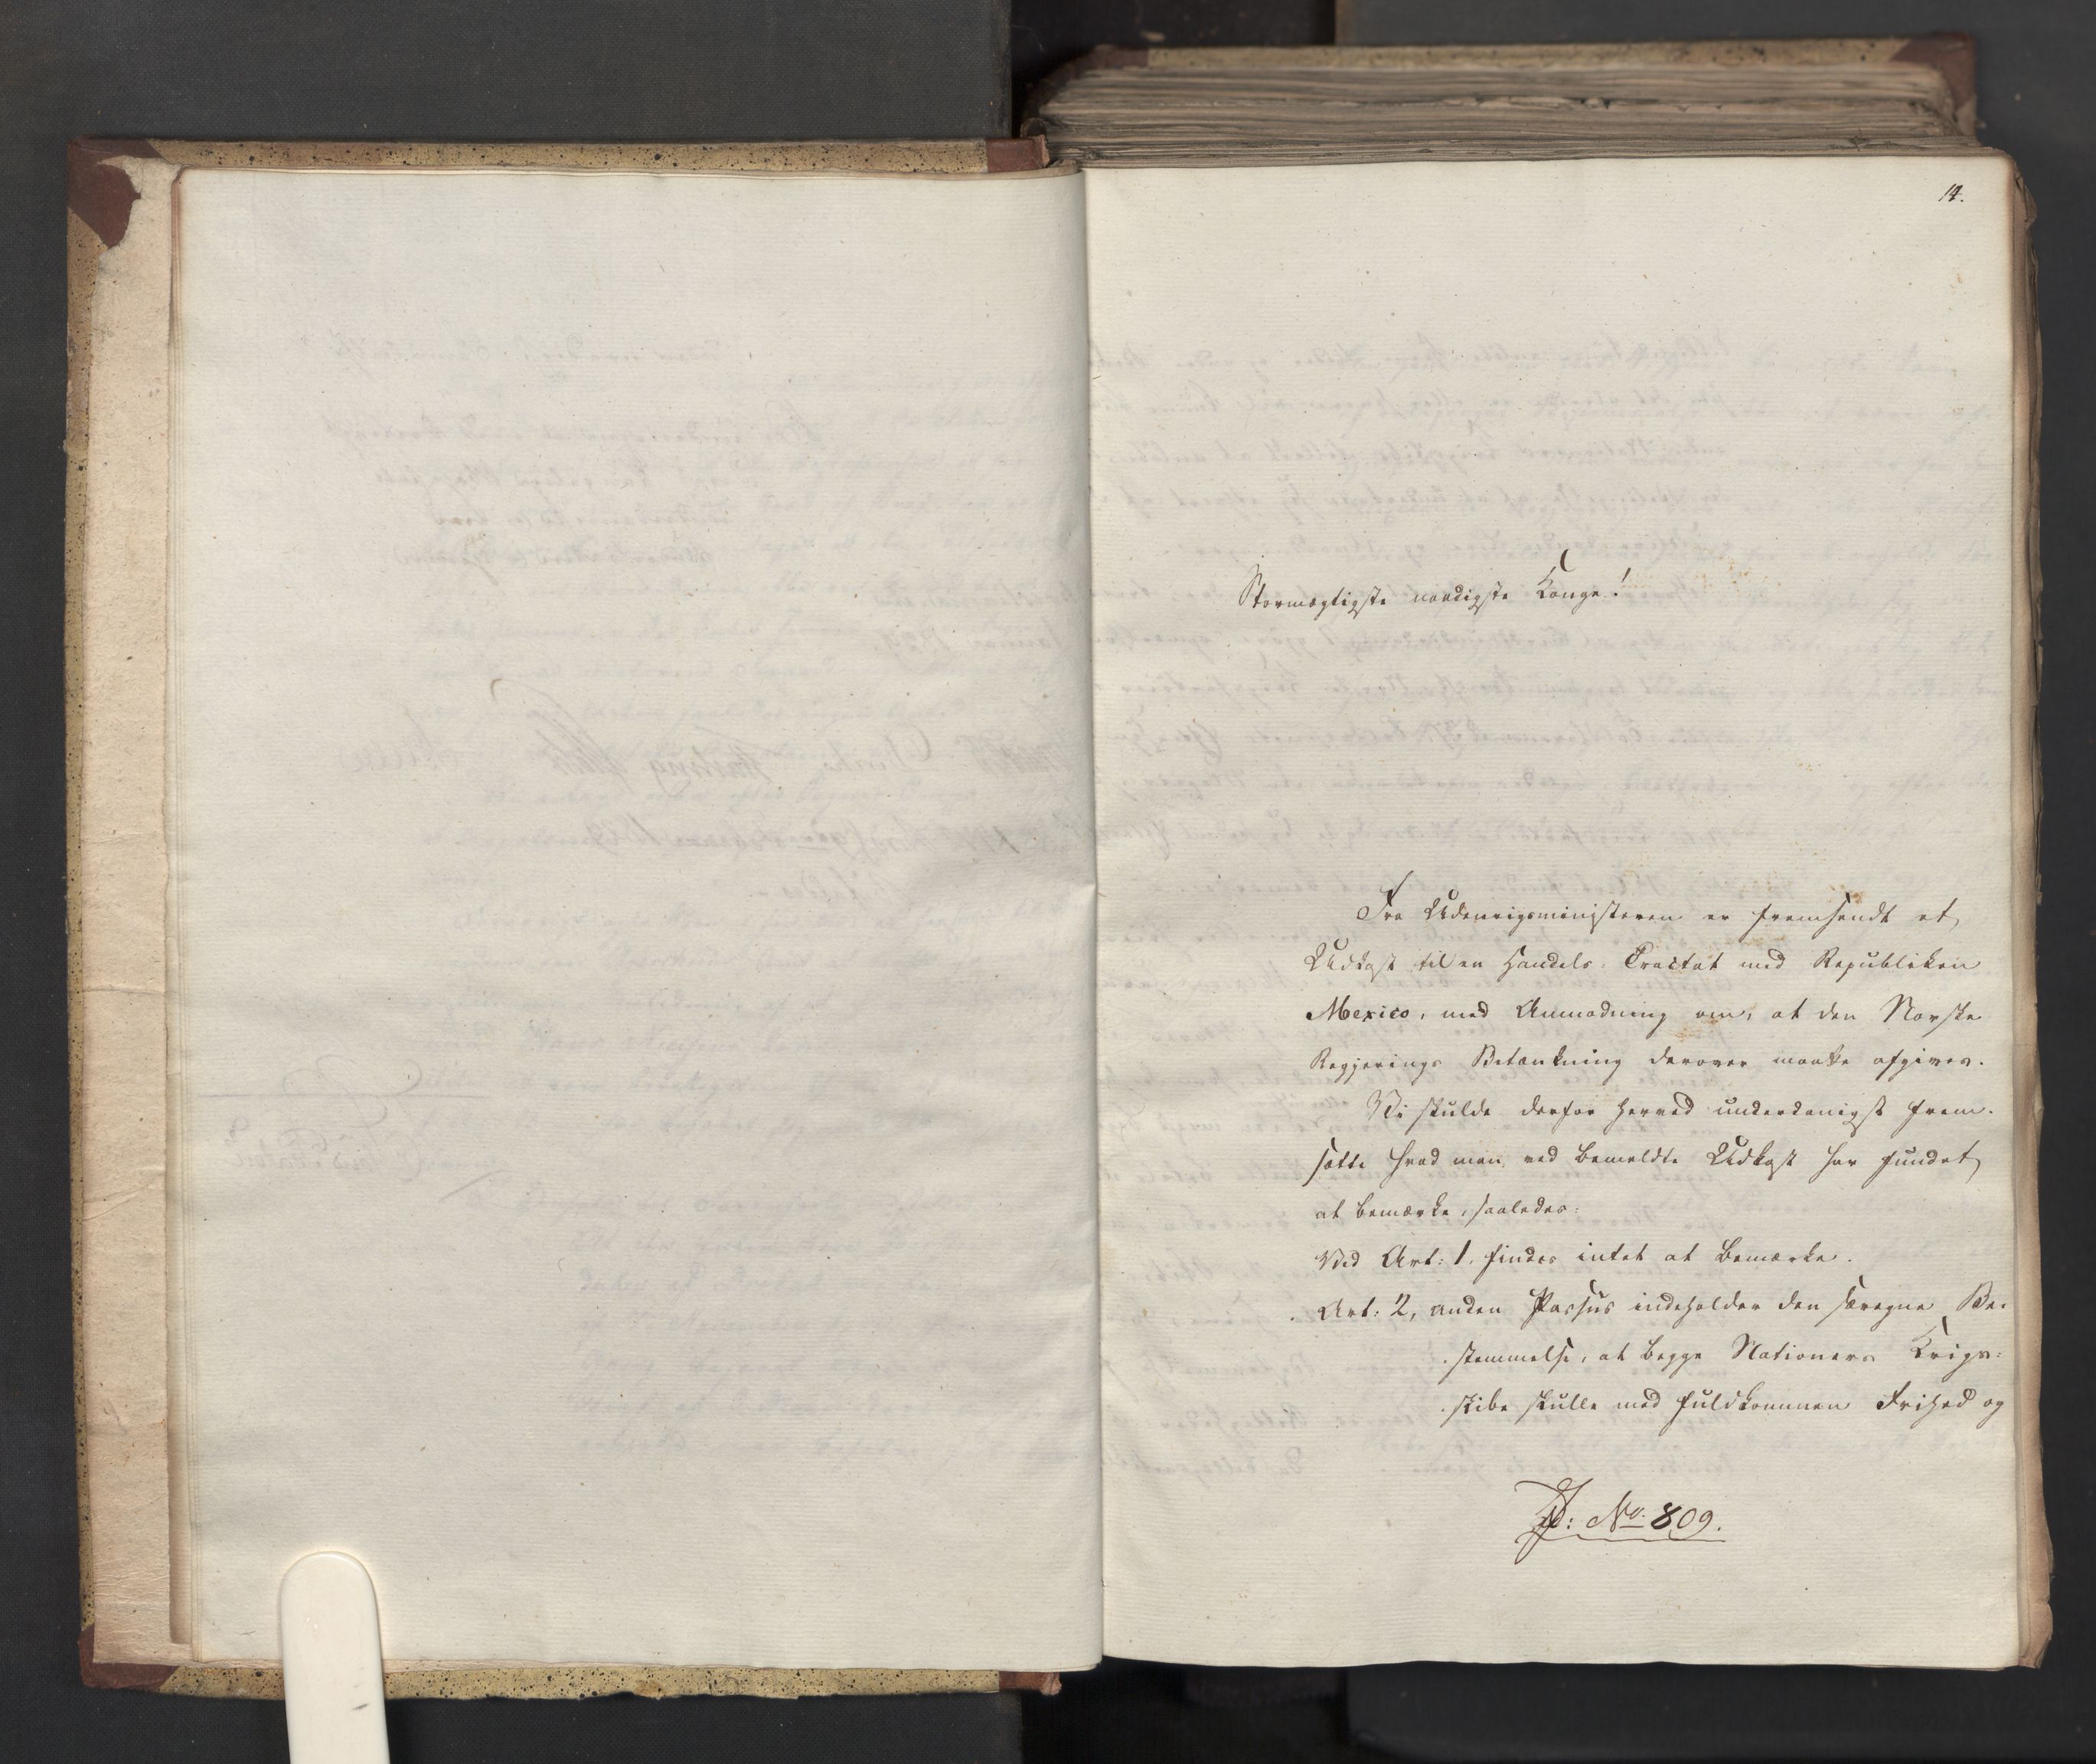 14.
Stormægtigste naadigste Konge!
Fra Udenrigsministeren er fremsendt et
Udkast til en Handels-Tractat med Republiken
Mexico, med Anmodning om, at den Norske
Regjerings Betænkning derover maatte afgives.
Vi skulde derfor herved underdanigst frem-
sætte hvad man ved bemeldte Udkast har fundet
at bemærke, saaledes:
Ved Art: 1. findes intet at bemærke.
Art: 2, anden Passus indeholder den særegne Be-
stemmelse, at begge Nationers Krigs-
skibe skulle med fuldkommen Frihed og
No. 809.